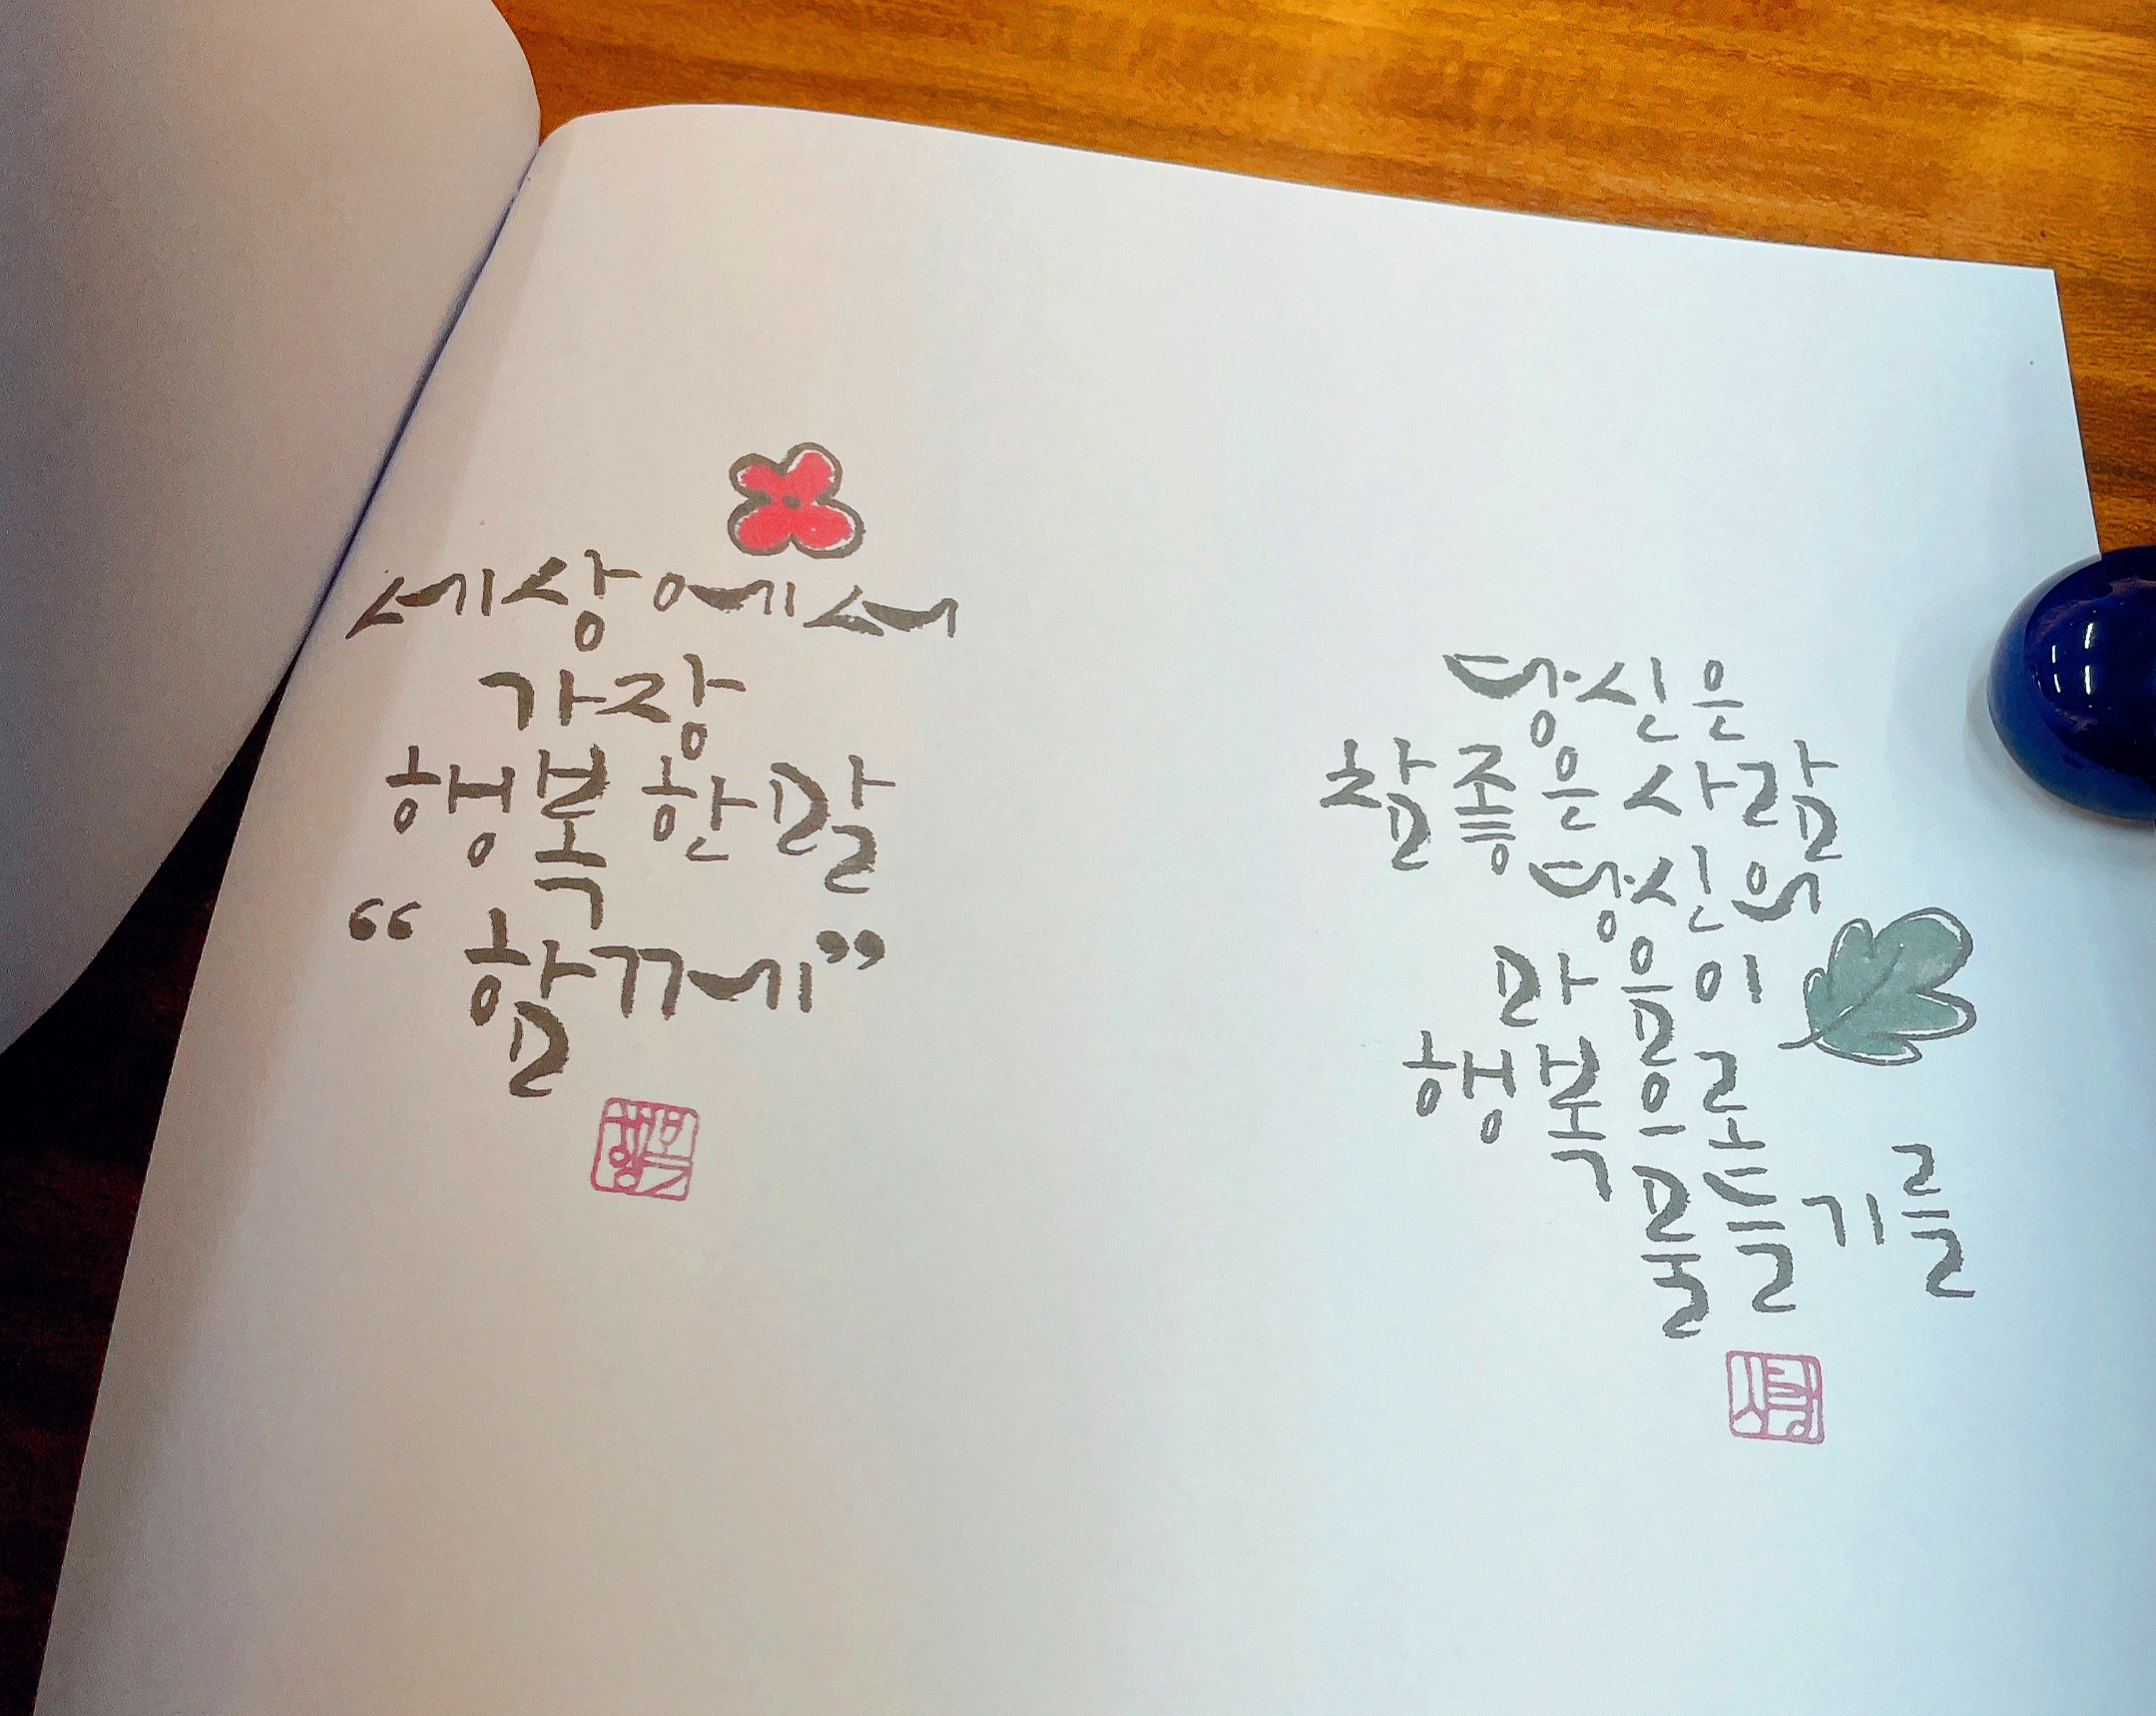 세상에서
가장
행복한말
“함께”
당신은
참좋은사람
당신의
마음이
행복으로
물들기를